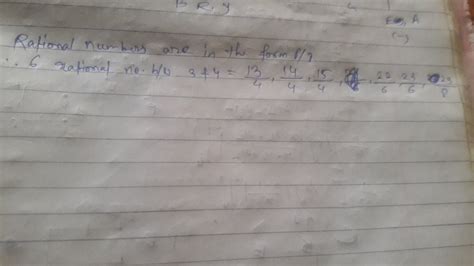 B R, y
Rational numbers are in the form P/q
∴ 6 rational no. b/w 3 & 4 = 13/4, 14/4, 15/4, 22/6, 23/6,